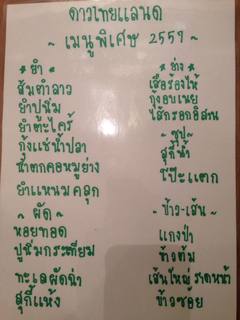 ดาวไทยแลนด์
~ เมนูพิเศษ 2559 ~
* ยำ *
ส้มตำลาว
ยำปูนิ่ม
ยำตะไคร้
กุ้งแช่น้ำปลา
น้ำตกคอหมูย่าง
ยำแหนมคลุก
~ ผัด ~
หอยทอด
ปูนิ่มกระเทียม
ทะเลผัดฉ่า
สุกี้แห้ง
* ย่าง *
เสือร้องไห้
กุ้งอบเนย
ไส้กรอกอีสาน
~ ซุป ~
สุกี้น้ำ
โป๊ะแตก
~ ข้าว-เส้น ~
แกงป่า
ข้าวต้ม
เส้นใหญ่ราดหน้า
ข้าวซอย